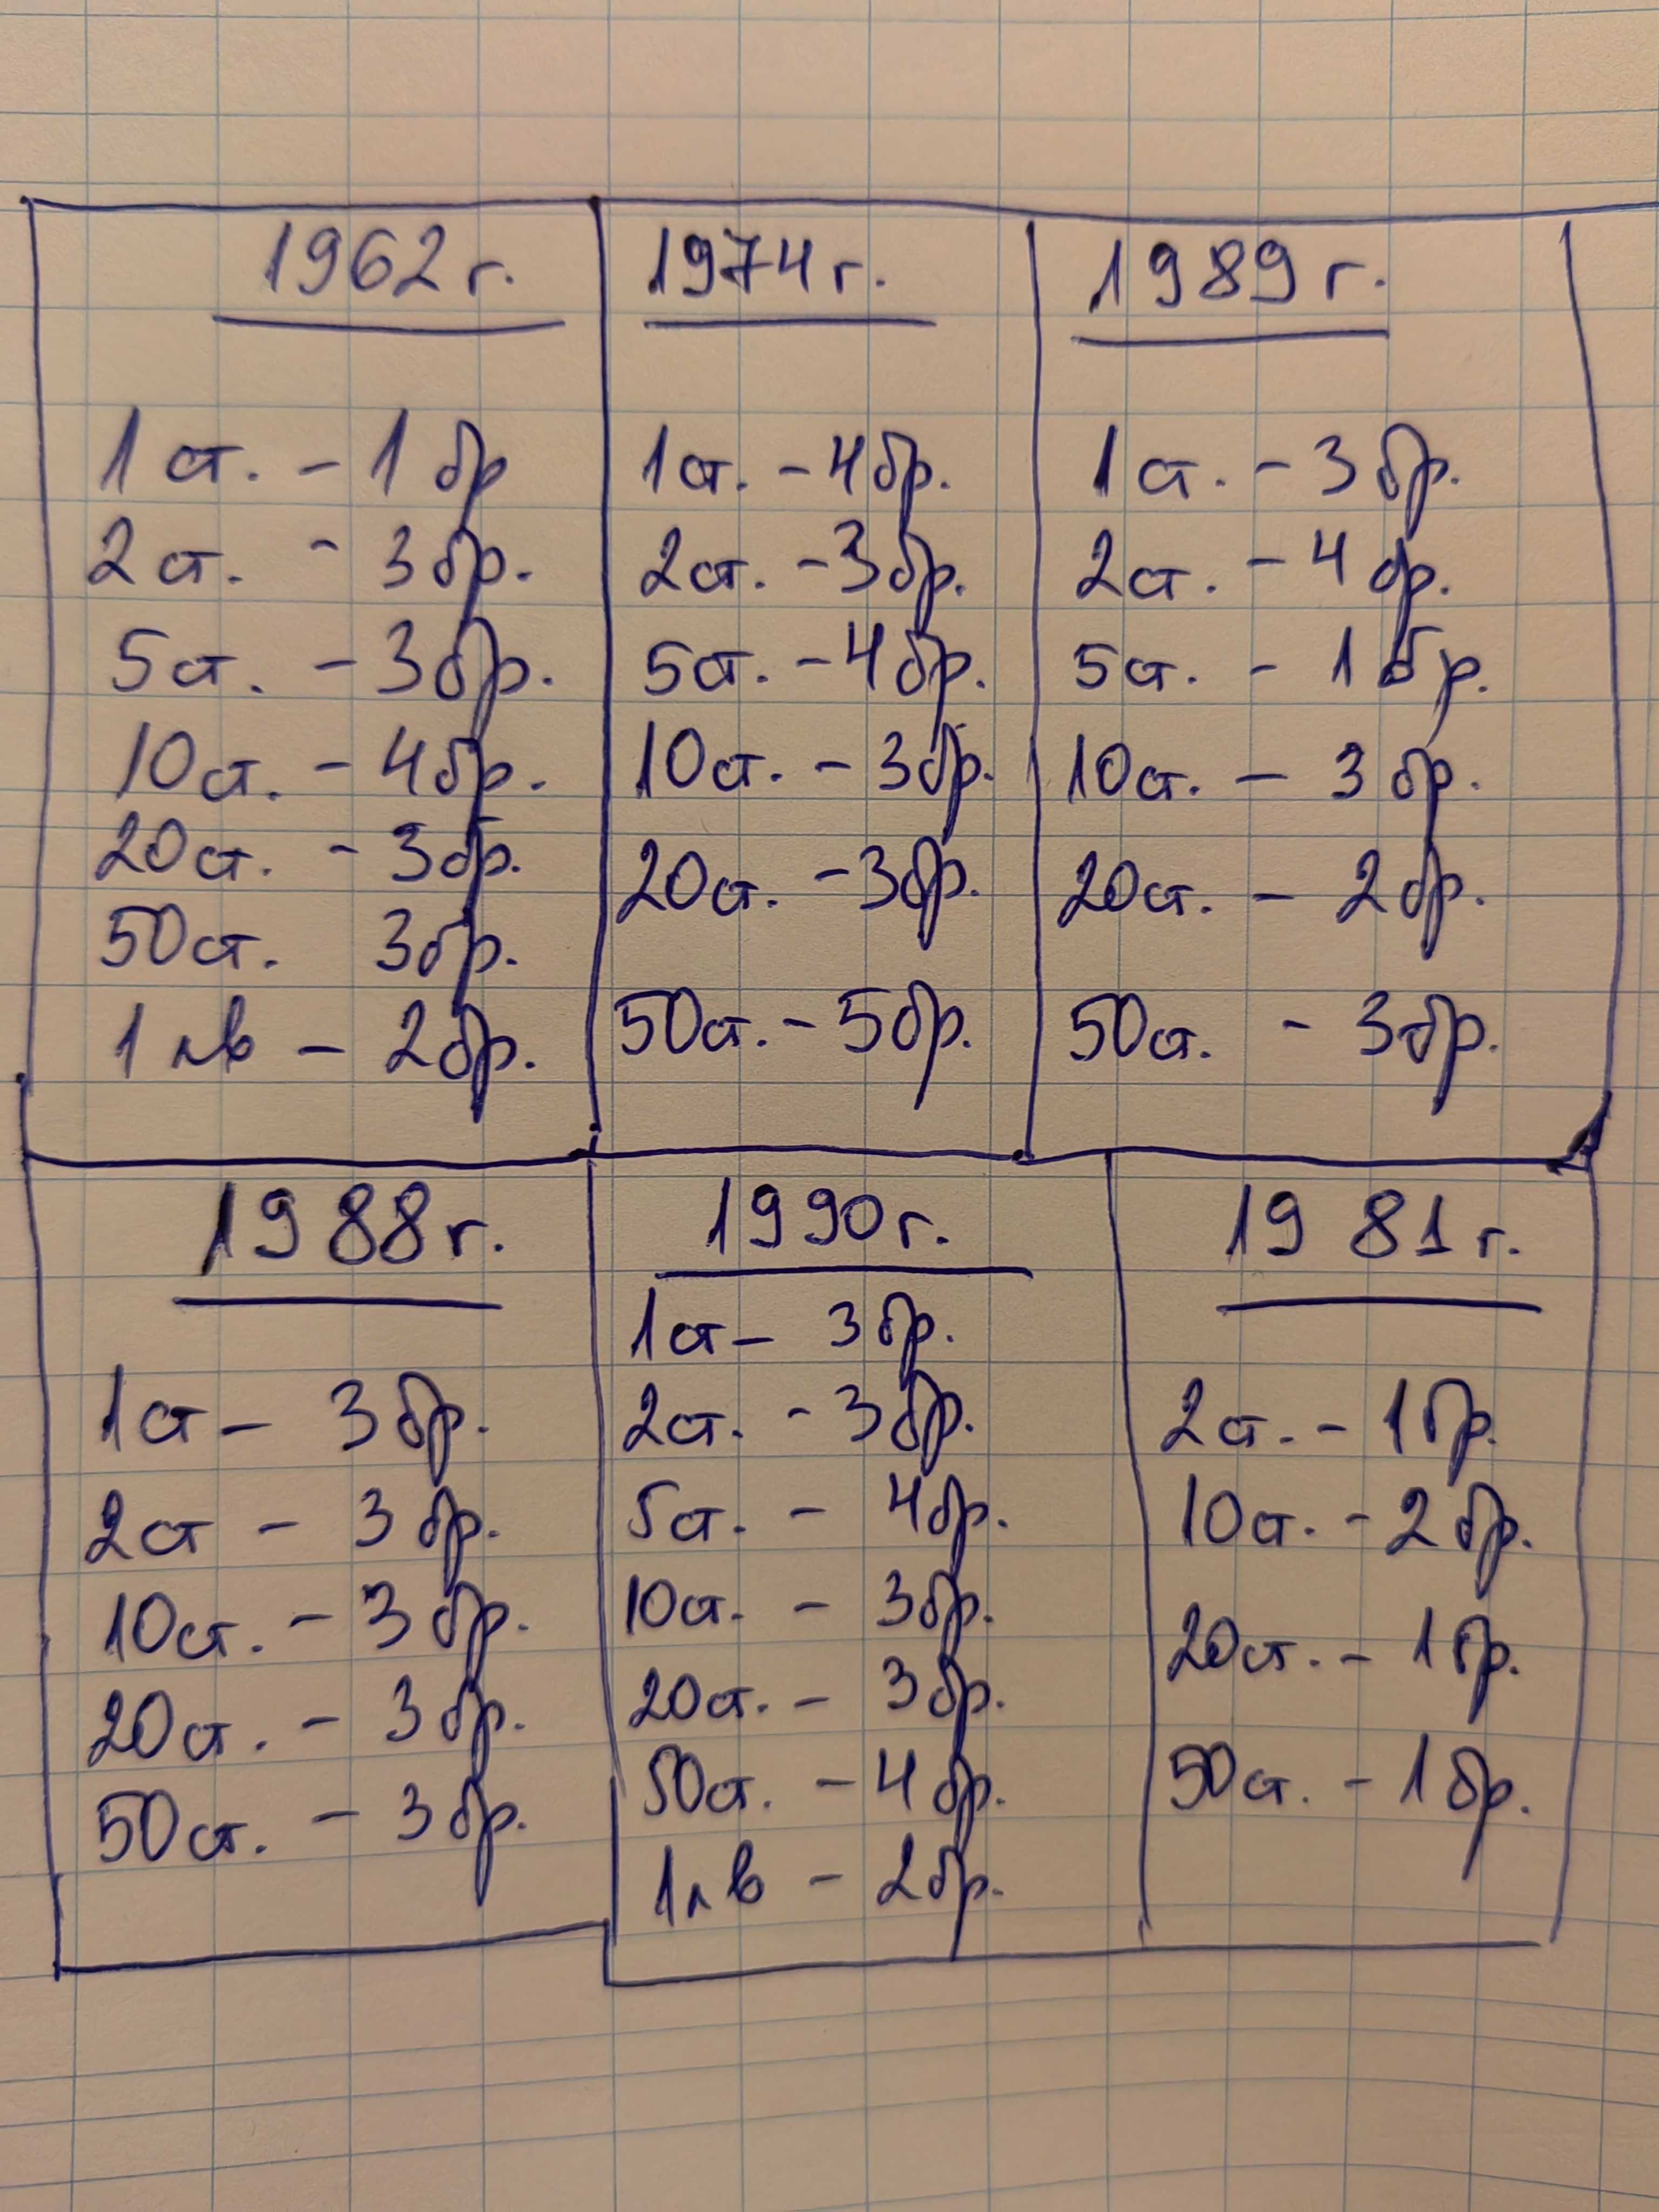 1962 г.
1 ст. - 1 бр
2 ст. - 3 бр.
5 ст. - 3 бр.
10 ст. - 4 бр.
20 ст. - 3 бр.
50 ст. 3 бр.
1 лв - 2 бр.
1974 г.
1 ст. - 4 бр.
2 ст. - 3 бр.
5 ст. - 4 бр.
10 ст. - 3 бр.
20 ст. - 3 бр.
50 ст. - 5 бр.
1989 г.
1 ст. - 3 бр.
2 ст. - 4 бр.
5 ст. - 1 бр.
10 ст. - 3 бр.
20 ст. - 2 бр.
50 ст. - 3 бр.
1988 г.
1 ст - 3 бр.
2 ст - 3 бр.
10 ст. - 3 бр.
20 ст. - 3 бр.
50 ст. - 3 бр.
1990 г.
1 ст - 3 бр.
2 ст. - 3 бр.
5 ст. - 4 бр.
10 ст. - 3 бр.
20 ст. - 3 бр.
50 ст. - 4 бр.
1 лв - 2 бр.
1981 г.
2 ст. - 1 бр.
10 ст. - 2 бр.
20 ст. - 1 бр.
50 ст. - 1 бр.